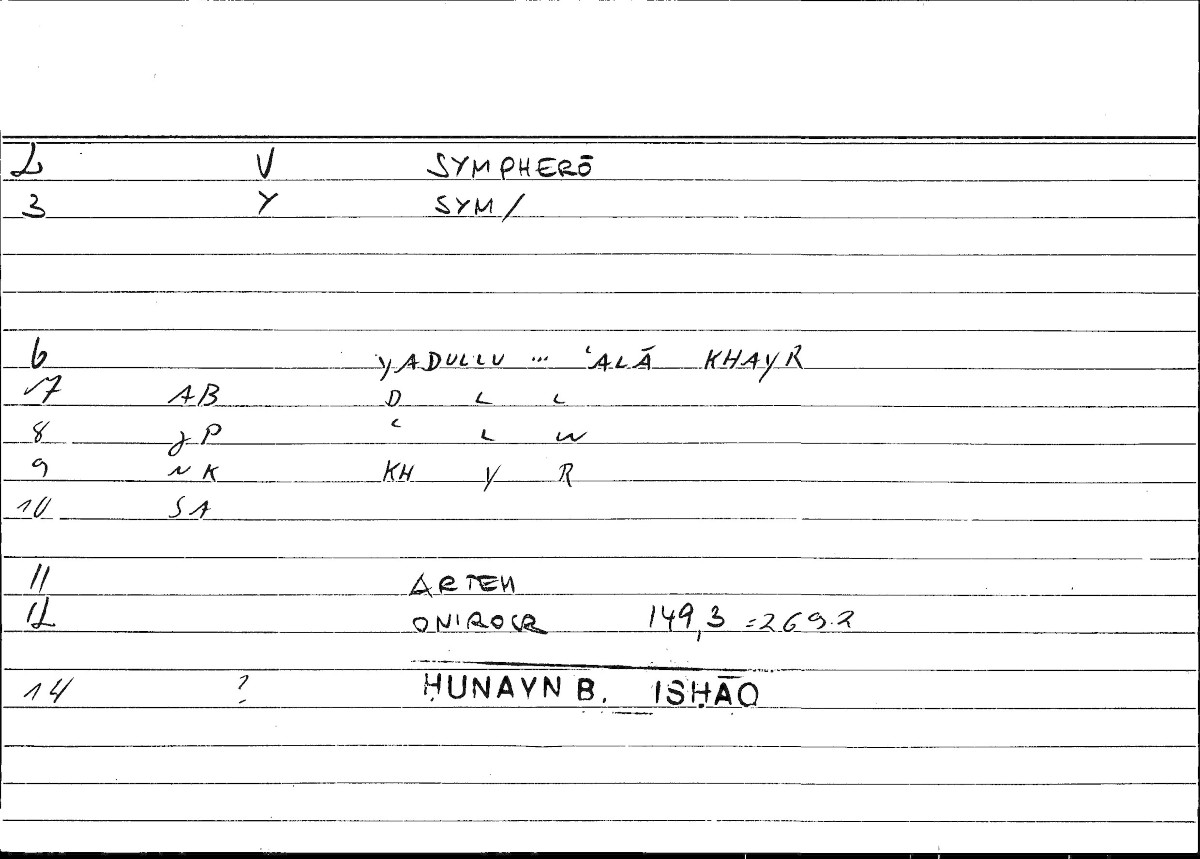 2 V SYMPHERŌ
3 Y SYM/
6 YADULLU ... ʿALĀ KHAYR
7 AB D L L
8 JP ʿ L W
9 NK KH Y R
10 SA
11 ARTEM
12 ONIROCR 149,3 =269.2
14 ? ḤUNAYN B. ISḤĀQ